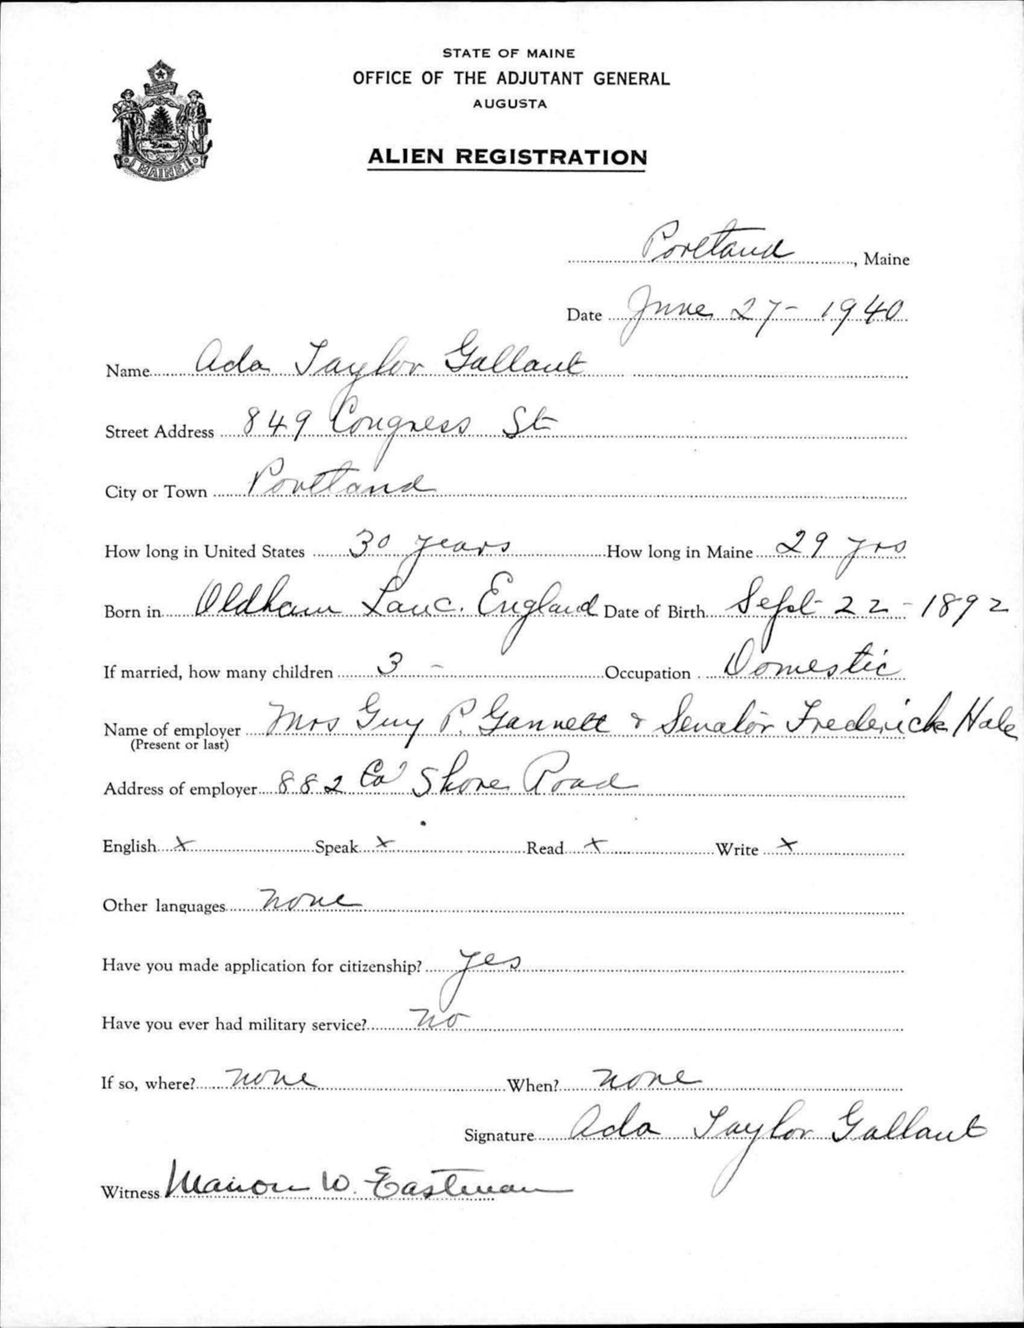 STATE OF MAINE
OFFICE OF THE ADJUTANT GENERAL
AUGUSTA
ALIEN REGISTRATION
MAINE
Portland, Maine
Date June 27 - 1940
Name Ada Taylor Gallant
Street Address 849 Congress St
City or Town Portland
How long in United States 30 years How long in Maine 29 yrs
Born in Oldham Lanc. England Date of Birth Sept 22 - 1892
If married, how many children 3 - Occupation Domestic
Name of employer Mrs Guy P. Gannett & Senator Frederick Hale
(Present or last)
Address of employer 882 Shore Road
English x Speak x Read x Write x
Other languages none
Have you made application for citizenship? yes
Have you ever had military service? no
If so, where? none When? none
Signature Ada Taylor Gallant
Witness Marion W. Eastman